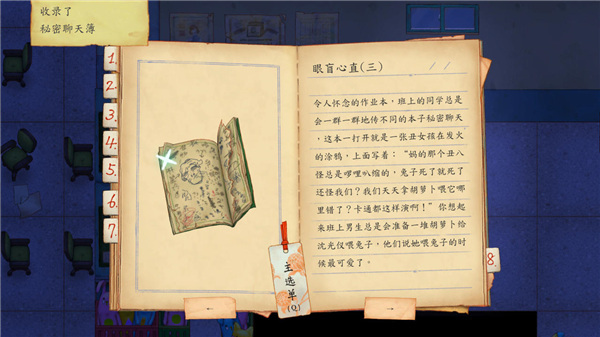 收录了
秘密聊天薄
1.
2.
3.
4.
5.
6.
7.
主选单
(Q)
眼盲心直(三)
令人怀念的作业本，班上的同学总是
会一群一群地传不同的本子秘密聊天
，这本一打开就是一张丑女孩在发火
的涂鸦，上面写着：“妈的那个丑八
怪总是啰哩叭缩的，兔子死了就死了
还怪我们？我们天天拿胡萝卜喂它哪
里错了？卡通都这样演啊！”你想起
来班上男生总是会准备一堆胡萝卜给
沈光仪喂兔子，他们说她喂兔子的时
候最可爱了。
8.